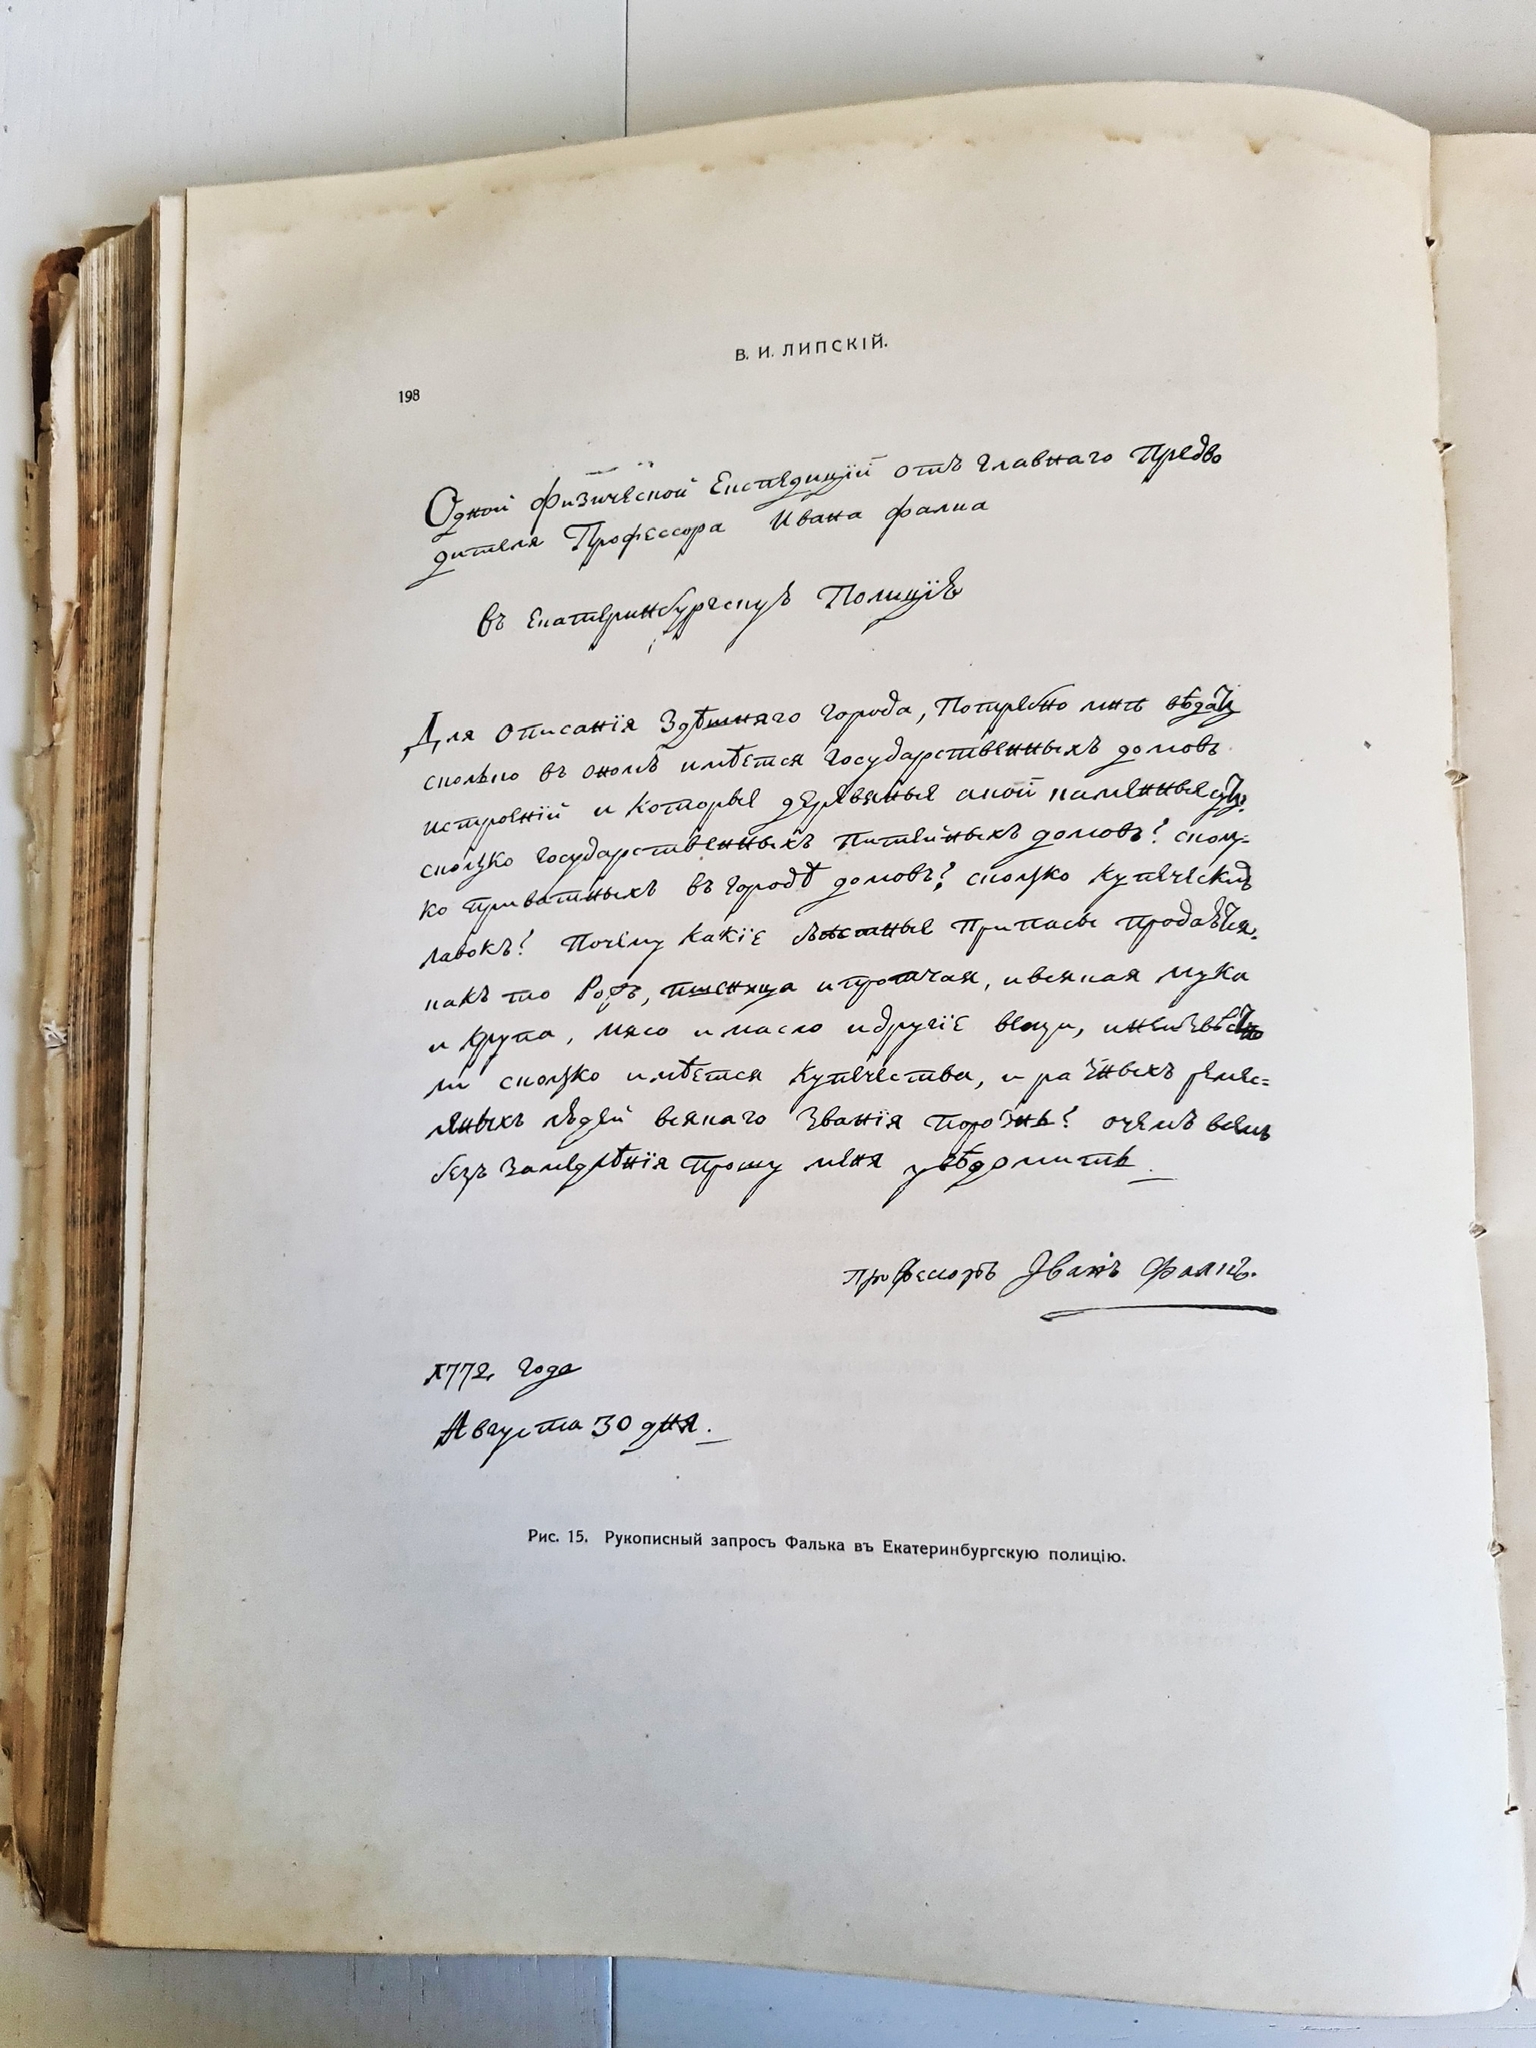 В. И. ЛИПСКІЙ.
198
Одной физической Експедицїй отъ главнаго Предво
дителя Профессора Ивана фалка
въ Екатеринбургскуъ Полицїѣ
Для описанїя Здѣшняго города, Потребно мнѣ вѣдать
сколько въ ономъ имѣется государственныхъ домовъ
истроенїй и которые деревяныя аной каменныя
сколько государственныхъ питейныхъ домовъ? сколь-
ко приватныхъ въ городѣ домовъ? сколько купѣческихъ
лавокъ? Почему какїе съѣстные Припасы продаются.
какъ то Рожъ, пшеница и протчая, и всякая мука
и крупа, мясо и масло и другїе вещи,
ли сколько имѣется купечества, и разныхъ ремес=
леныхъ людей всякаго званїя порознь? очемъ всемъ
безъ замедлѣнїя Прошу меня увѣдомить.
профессоръ Іванъ Фалкъ.
1772 года
Августа 30 дня.
Рис. 15. Рукописный запросъ Фалька въ Екатеринбургскую полицію.